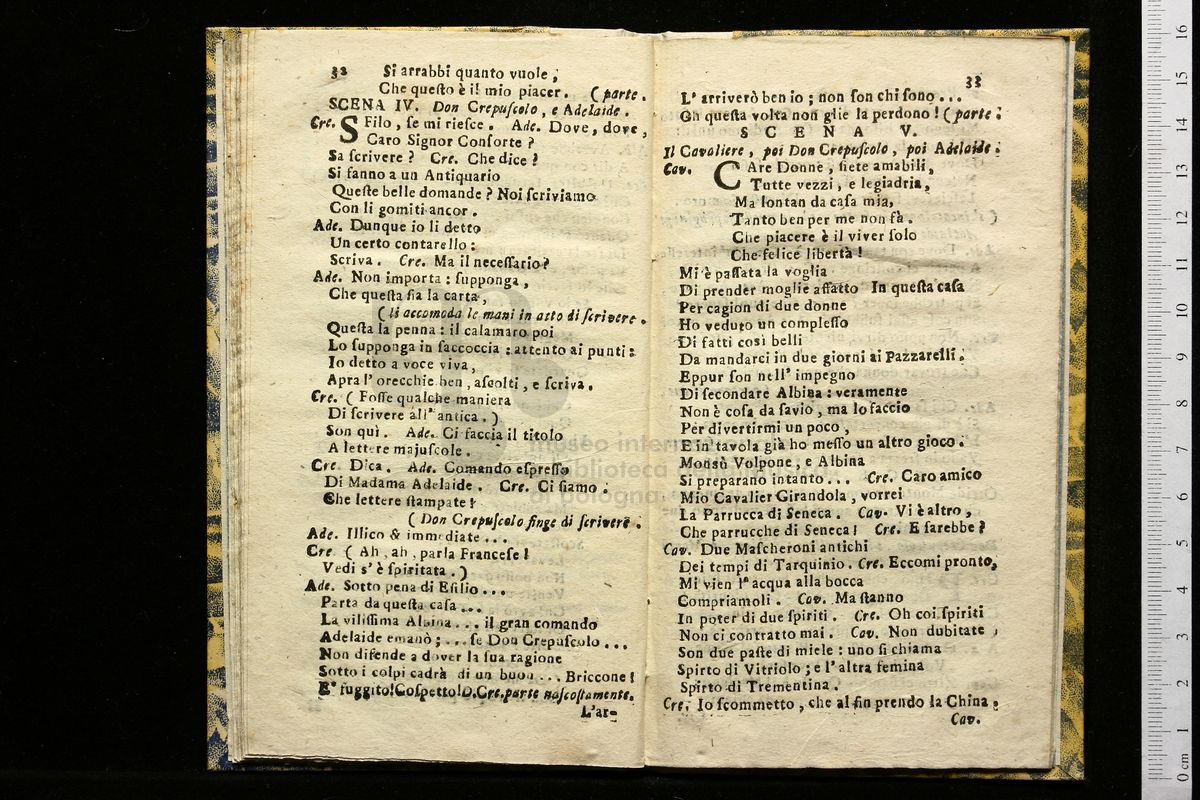 32 Si arrabbi quanto vuole,
Che queſto è il mio piacer. (parte.
SCENA IV. Don Crepuſcolo, e Adelaide.
Cre. SFilo, ſe mi rieſce. Ade. Dove, dove,
Caro Signor Conſorte?
Sa ſcrivere? Cre. Che dice?
Si fanno a un Antiquario
Queſte belle domande? Noi ſcriviamo
Con li gomiti ancor.
Ade. Dunque io li detto
Un certo contarello:
Scriva. Cre. Ma il neceſſario?
Ade. Non importa: ſupponga,
Che queſta ſia la carta,
(li accomoda le mani in atto di ſcrivere.
Queſta la penna: il calamaro poi
Lo ſupponga in ſaccoccia: attento ai punti:
Io detto a voce viva,
Apra l' orecchie ben, aſcolti, e ſcriva.
Cre. (Foſſe qualche maniera
Di ſcrivere all' antica.)
Son quì. Ade. Ci faccia il titolo
A lettere majuſcole.
Cre. Dica. Ade. Comando eſpreſſo
Di Madama Adelaide. Cre. Ci ſiamo:
Che lettere ſtampate!
(Don Crepuſcolo finge di ſcrivere.
Ade. Illico & immediate...
Cre (Ah, ah, parla Franceſe!
Vedi s' è ſpiritata.)
Ade. Sotto pena di Eſilio...
Parta da queſta caſa...
La viliſſima Albina... il gran comando
Adelaide emanò;... ſe Don Crepuſcolo...
Non difende a dover la ſua ragione
Sotto i colpi cadrà di un buon... Briccone!
E' fuggito! Coſpetto! D.Cre.parte naſcoſtamente.
L'ar-
33
L' arriverò ben io; non ſon chi ſono...
Oh queſta volta non glie la perdono! (parte.
SCENA V.
Il Cavaliere, poi Don Crepuſcolo, poi Adelaide.
Cav. CAre Donne, ſiete amabili,
Tutte vezzi, e legiadria,
Ma lontan da caſa mia,
Tanto ben per me non fà.
Che piacere è il viver ſolo
Che felice libertà!
Mi è paſſata la voglia
Di prender moglie affatto In queſta caſa
Per cagion di due donne
Ho veduto un compleſſo
Di fatti così belli
Da mandarci in due giorni ai Pazzarelli.
Eppur ſon nell' impegno
Di ſecondare Albina: veramente
Non è coſa da ſavio, ma lo faccio
Per divertirmi un poco,
E in tavola già ho meſſo un altro gioco.
Monsù Volpone, e Albina
Si preparano intanto... Cre. Caro amico
Mio Cavalier Girandola, vorrei
La Parrucca di Seneca. Cav. Vi è altro,
Che parrucche di Seneca! Cre. E ſarebbe?
Cav. Due Maſcheroni antichi
Dei tempi di Tarquinio. Cre. Eccomi pronto,
Mi vien l' acqua alla bocca
Compriamoli. Cav. Ma ſtanno
In poter di due ſpiriti. Cre. Oh coi ſpiriti
Non ci contratto mai. Cav. Non dubitate,
Son due paſte di miele: uno ſi chiama
Spirto di Vitriolo; e l' altra femina
Spirto di Trementina.
Cre. Io ſcommetto, che al fin prendo la China.
Cav.